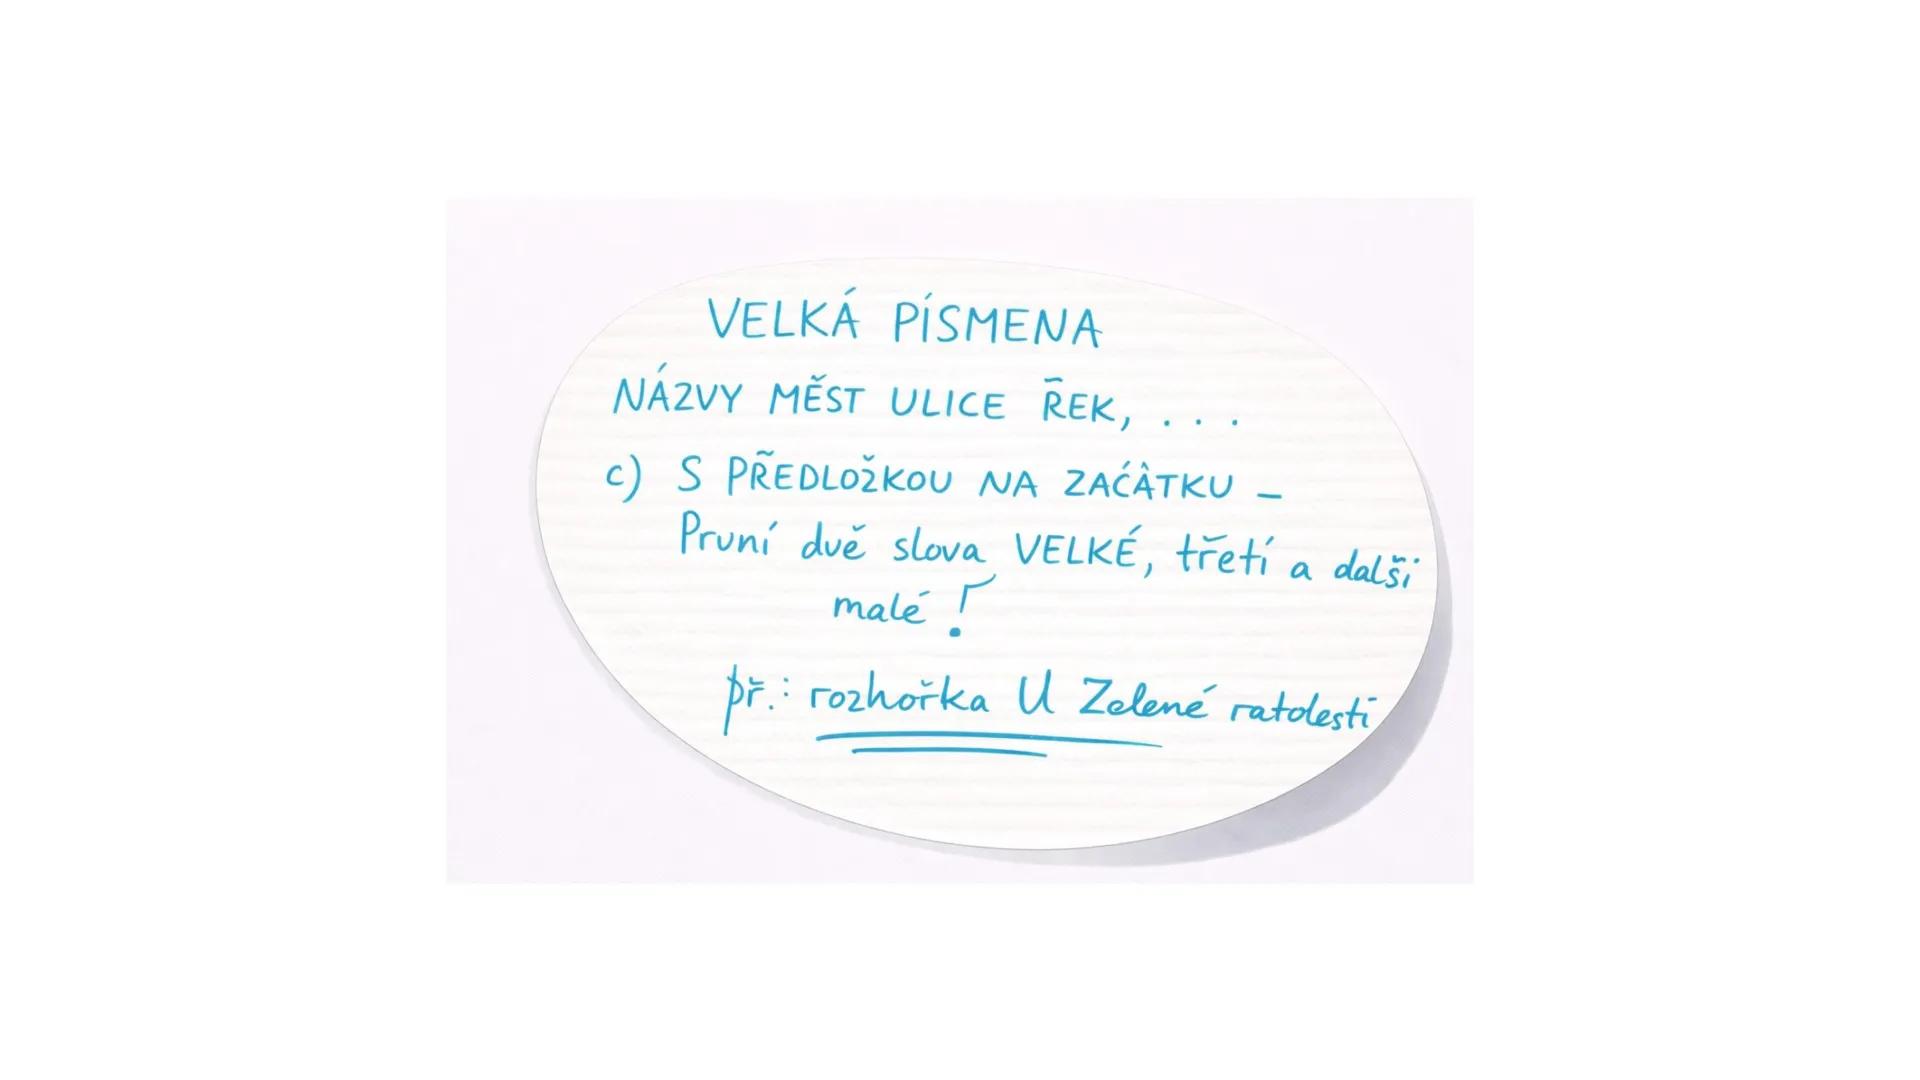 VELKÁ PÍSMENA
NÁZVY MĚST ULICE R̄EK, ...
c) S PŘEDLOŽKOU NA ZAĆÂTKU –
Pruní duě slova VELKÉ, třetí a další
malé!
př.: rozhořka U Zelené ratolesti